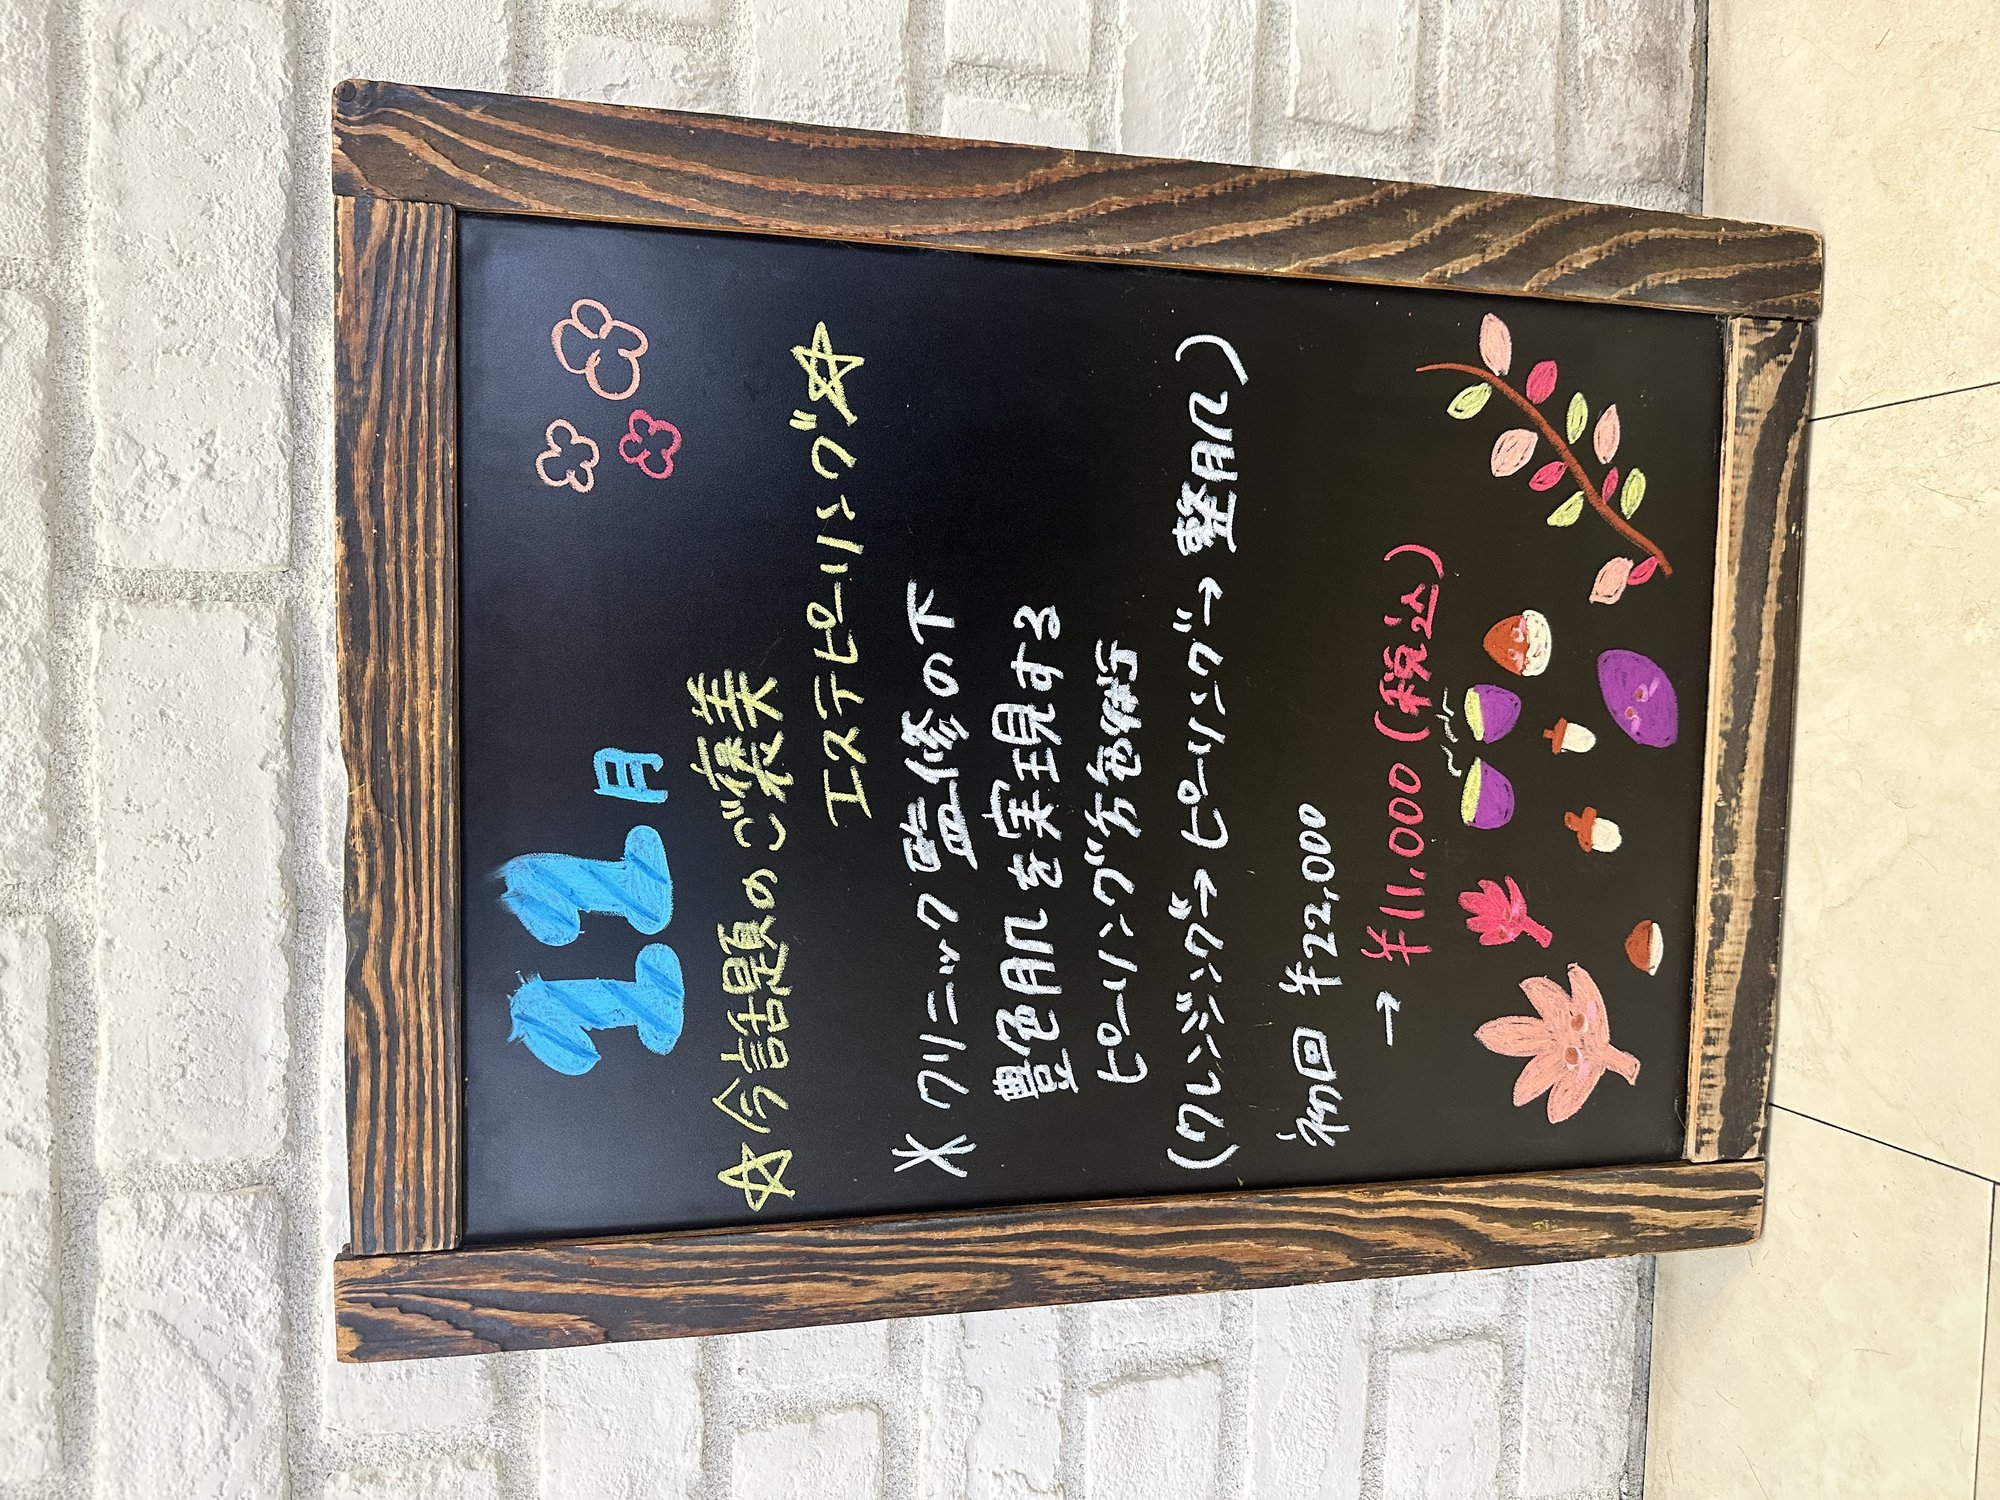 11月
☆今話題のご褒美
エステピーリング☆
※クリニック監修の下
艶肌を実現する
ピーリング施術
(クレンジング→ピーリング→整肌)
初回 ¥22,000
→ ¥11,000(税込)